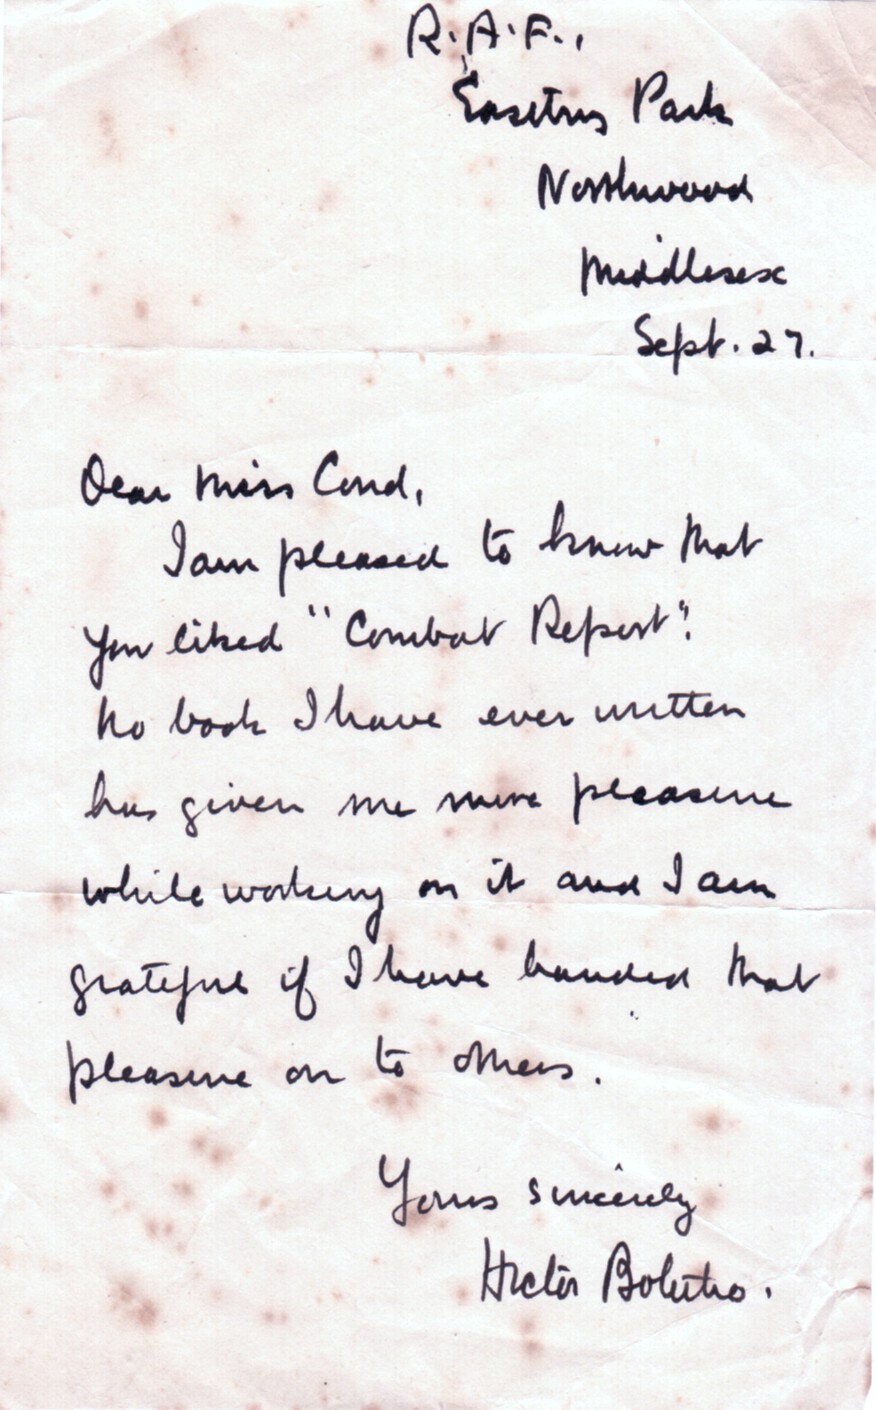 R.A.F.,
Eastbury Park
Northwood
Middlesex
Sept. 27.
Dear Miss Cond,
I am pleased to know that
you liked "Combat Report".
No book I have ever written
has given me more pleasure
while working on it and I am
grateful if I have handed that
pleasure on to others.
Yours sincerely
Hector Bolitho.